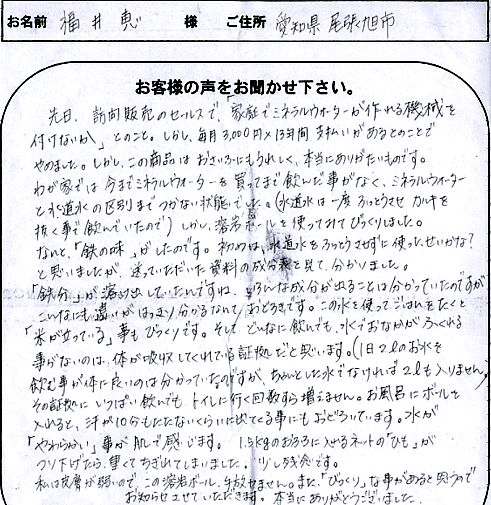 お名前 福井恵 様 ご住所 愛知県尾張旭市
お客様の声をお聞かせ下さい。
先日、訪問販売のセールスで、「家庭でミネラルウォーターが作れる機械を
付けないか」とのこと。しかし、毎月3,000円×13年間 支払いがあるとのことで
やめました。しかし、この商品はおさいふにもうれしく、本当にありがたいものです。
わが家では今までミネラルウォーターを買ってまで飲んだ事がなく、ミネラルウォーター
と水道水の区別までつかない状態でした。(水道水は一度ふっとうさせカルキを
抜く事で飲んでいたので) しかし、溶岩ボールを使ってみてびっくりしました。
なんと、「鉄の味」がしたのです。初めは、水道水をふっとうさせずに使ったせいかな?
と思いましたが、送っていただいた資料の成分表を見て、分かりました。
「鉄分」が溶け出していたんですね。いろんな成分が出ることは分かっていたのですが
こんなにも違いがはっきり分かるなんておどろきです。この水を使ってごはんをたくと
「米が立っている」事もびっくりです。そしてどんなに飲んでも、水でおなかがふくれる
事がないのは、体が吸収してくれている証拠だと思います。(1日2ℓのお水を
飲む事が体に良いのは分かっていたのですが、ちゃんとした水でなければ2ℓも入りません)
その証拠に いっぱい飲んでも トイレに行く回数すら増えません。お風呂にボールを
入れると、汗が10分もたたないくらいに出てくる事にもおどろいています。水が
「やわらかい」事が肌で感じます。 1.5kgのおふろに入れるネットの「ひも」が
つり下げたら、重くてちぎれてしまいました。少し残念です。
私は皮膚が弱いので、この溶岩ボール、手放せません。また、「びっくり」な事があると思うので
お知らせさせていただきます。本当にありがとうございました。